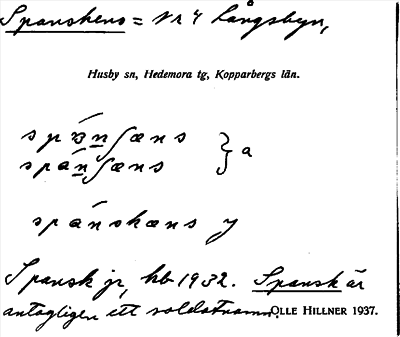 Spanskens = Nr 4 Långsbyn,
Husby sn, Hedemora tg, Kopparbergs län.
spɑ̀nʃæns } a
spànʃæns
spànskæns y
Spansk jr, hb 1932. Spansk är
antagligen ett soldatnamn. OLLE HILLNER 1937.